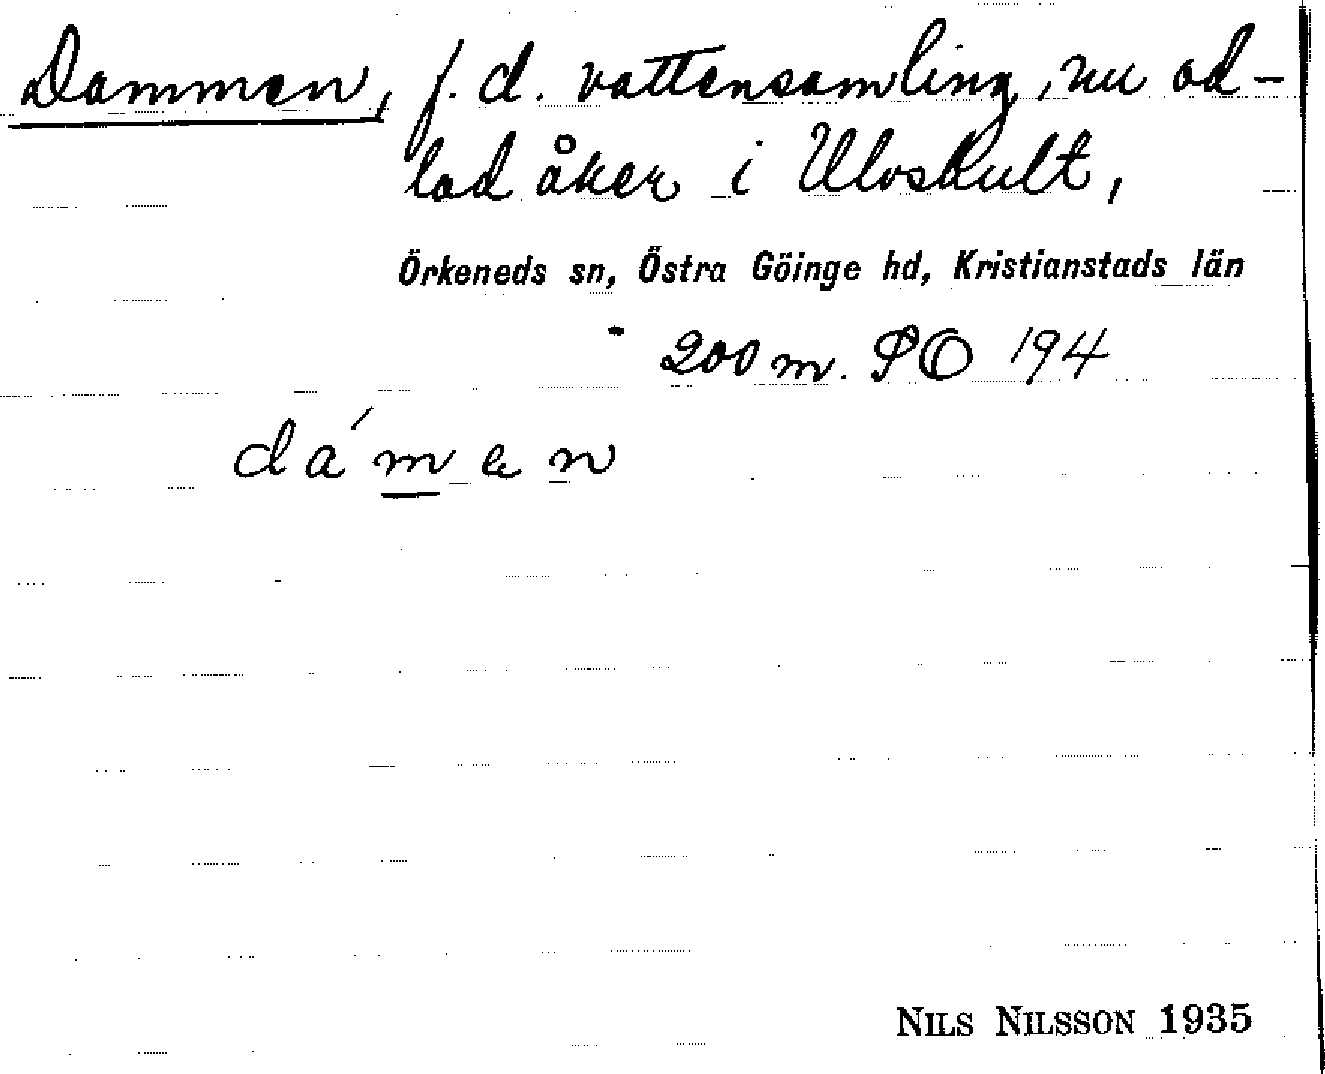 Dammen, f. d. vattensamling, nu od-
lad åker i Ulvshult,
Örkeneds sn, Östra Göinge hd, Kristianstads län
200 m. SO 194
dámen
NILS NILSSON 1935